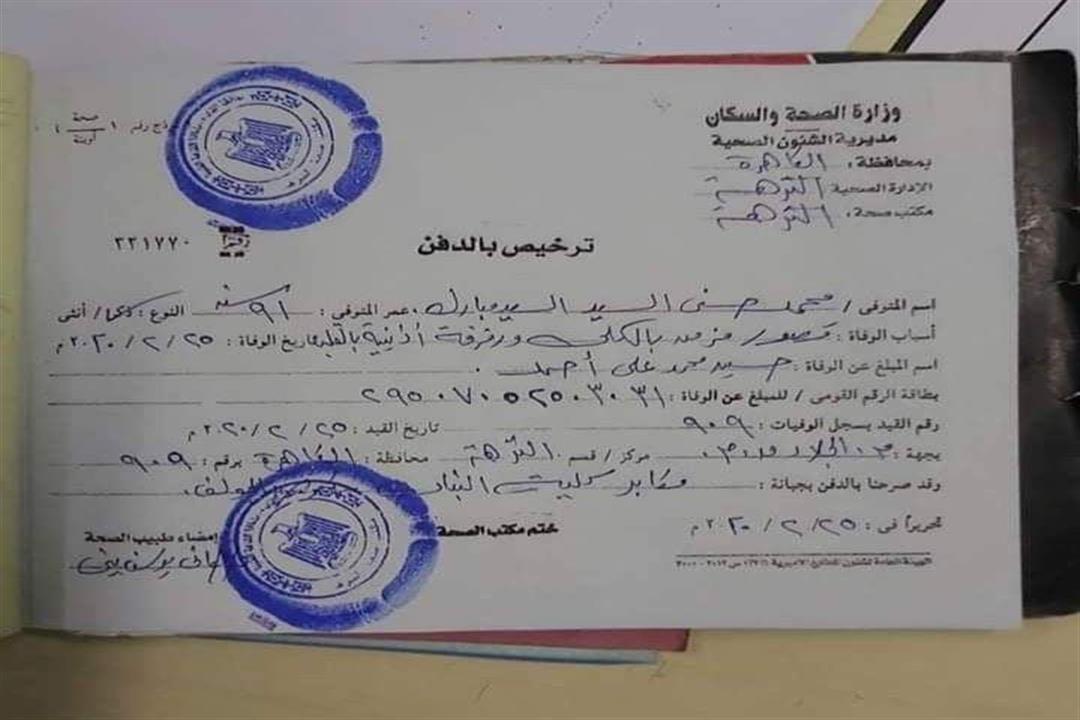 وزارة الصحة والسكان
مديرية الشئون الصحية
بمحافظة: القاهرة
الإدارة الصحية النزهة
مكتب صحة: النزهة
صحة
ترخيص بالدفن
٢٢١٧٧٠
اسم المتوفى / محمد حسنى السيد السيد مبارك عمر المتوفى: ٩١ سنة النوع: ذكر / أنثى
أسباب الوفاة: قصور مزمن بالكلى ورفرفة أذينية بالقلب تاريخ الوفاة: ٢٥ / ٢ / ٢٠٢٠ م
اسم المبلغ عن الوفاة: محمد على أحمد
بطاقة الرقم القومى / للمبلغ عن الوفاة:
رقم القيد بسجل الوفيات: ٩٠٩ تاريخ القيد: ٢٥ / ٢ / ٢٠٢٠ م
بجهة: الجلاء مركز / قسم النزهة محافظة: القاهرة برقم: ٩٠٩
وقد صرحنا بالدفن بجبانة: مقابر كلية
تحريراً فى: ٢٥ / ٢ / ٢٠٢٠ م
ختم مكتب الصحة
إمضاء طبيب الصحة
الهيئة العامة لشئون المطابع الأميرية